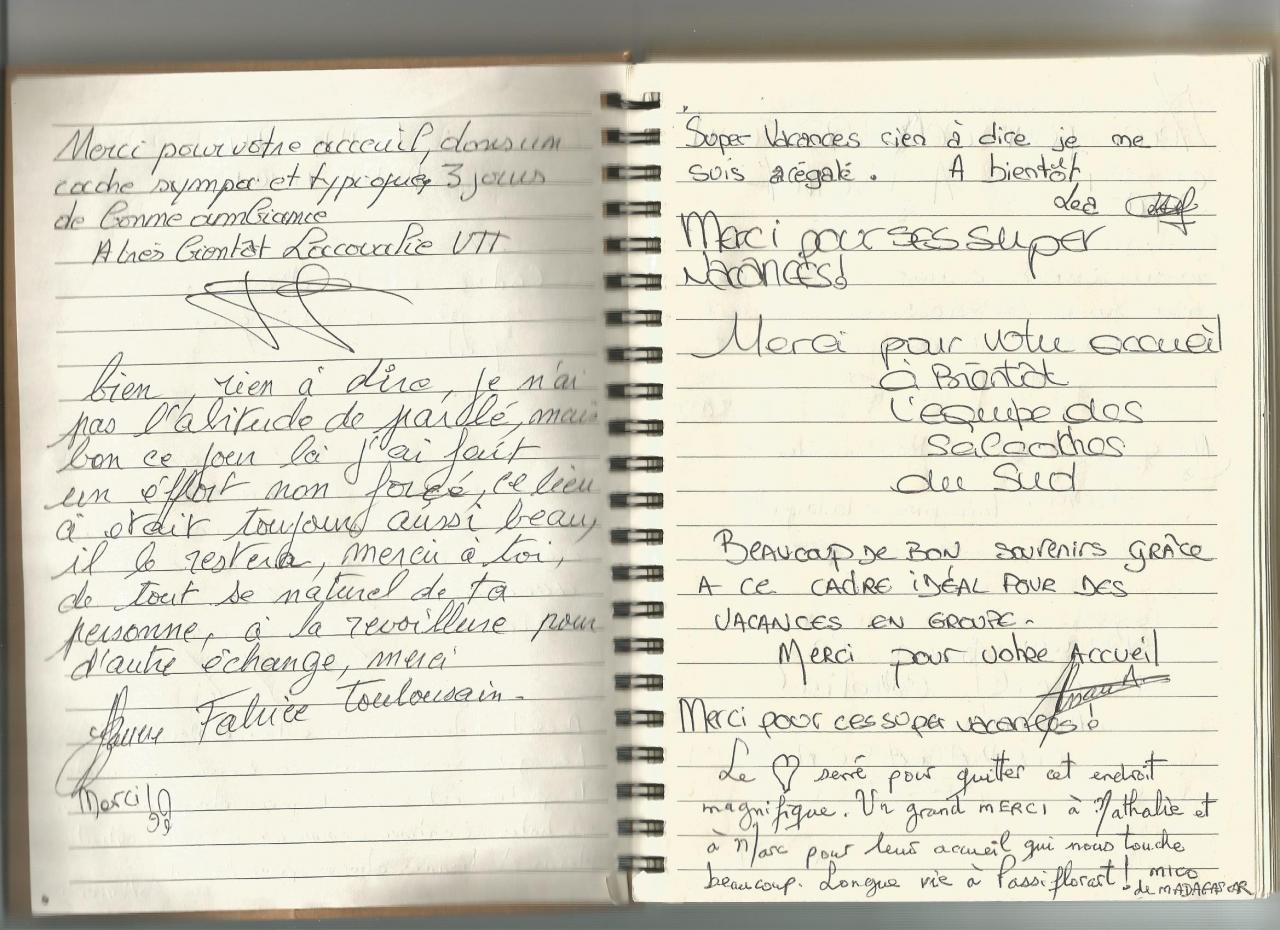 Merci pour votre acceuil, dans un
cadre sympa et typique, 3 jours
de bonne ambiance
A très bientôt VTT
bien, rien à dire, je n'ai
pas l'abitude de parlé, mais
bon ce jour là j'ai fait
un éffort non forcé, ce lieu
à était toujours aussi beau,
il le restera, merci à toi,
de tout se naturel de ta
personne, à la revoilleure pour
d'autre échange, merci
Fabrice Toulousain.
Merci!
Super Vacances rien à dire je me
suis régalé. A bientôt
Léa
Merci pour ses super
vacances!
Merci pour votre accueil
à Bientôt
L'equipe des
du Sud
BEAUCOUP DE BON SOUVENIRS GRÂCE
A CE CADRE IDÉAL POUR DES
VACANCES EN GROUPE.
MERCI pour votre Accueil
Merci pour ces super vacances!
Le ♡ serré pour quitter cet endroit
magnifique. Un grand MERCI à Nathalie et
à Marc pour leur accueil qui nous touche
beaucoup. Longue vie à Passiflorart! MICO
de MADAGASCAR